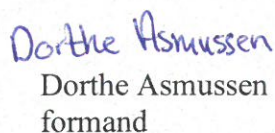 Dorthe Asmussen
Dorthe Asmussen
formand